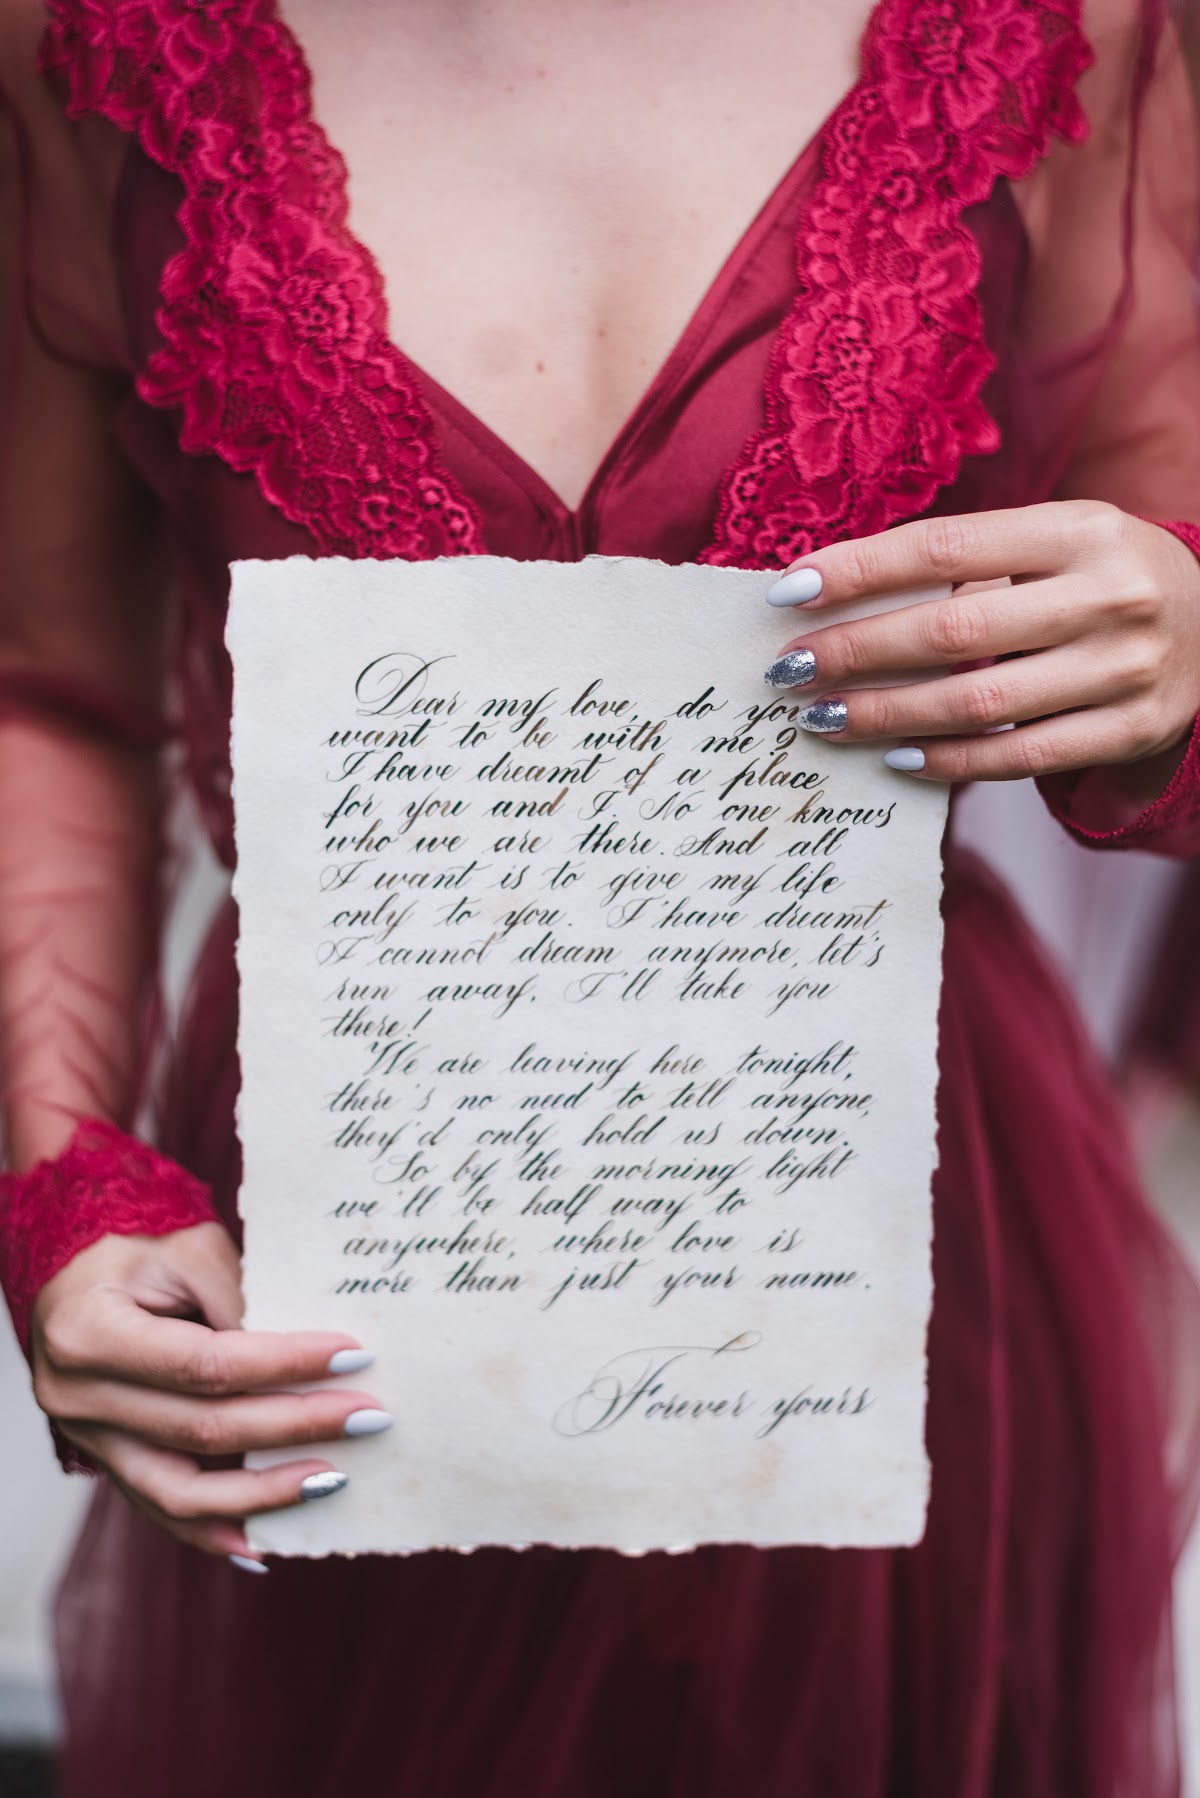 Dear my love, do you
want to be with me?
I have dreamt of a place
for you and I. No one knows
who we are there. And all
I want is to give my life
only to you. I have dreamt,
I cannot dream anymore, let's
run away. I'll take you
there!
We are leaving here tonight,
there's no need to tell anyone,
they'd only hold us down.
So by the morning light
we'll be half way to
anywhere, where love is
more than just your name.
Forever yours